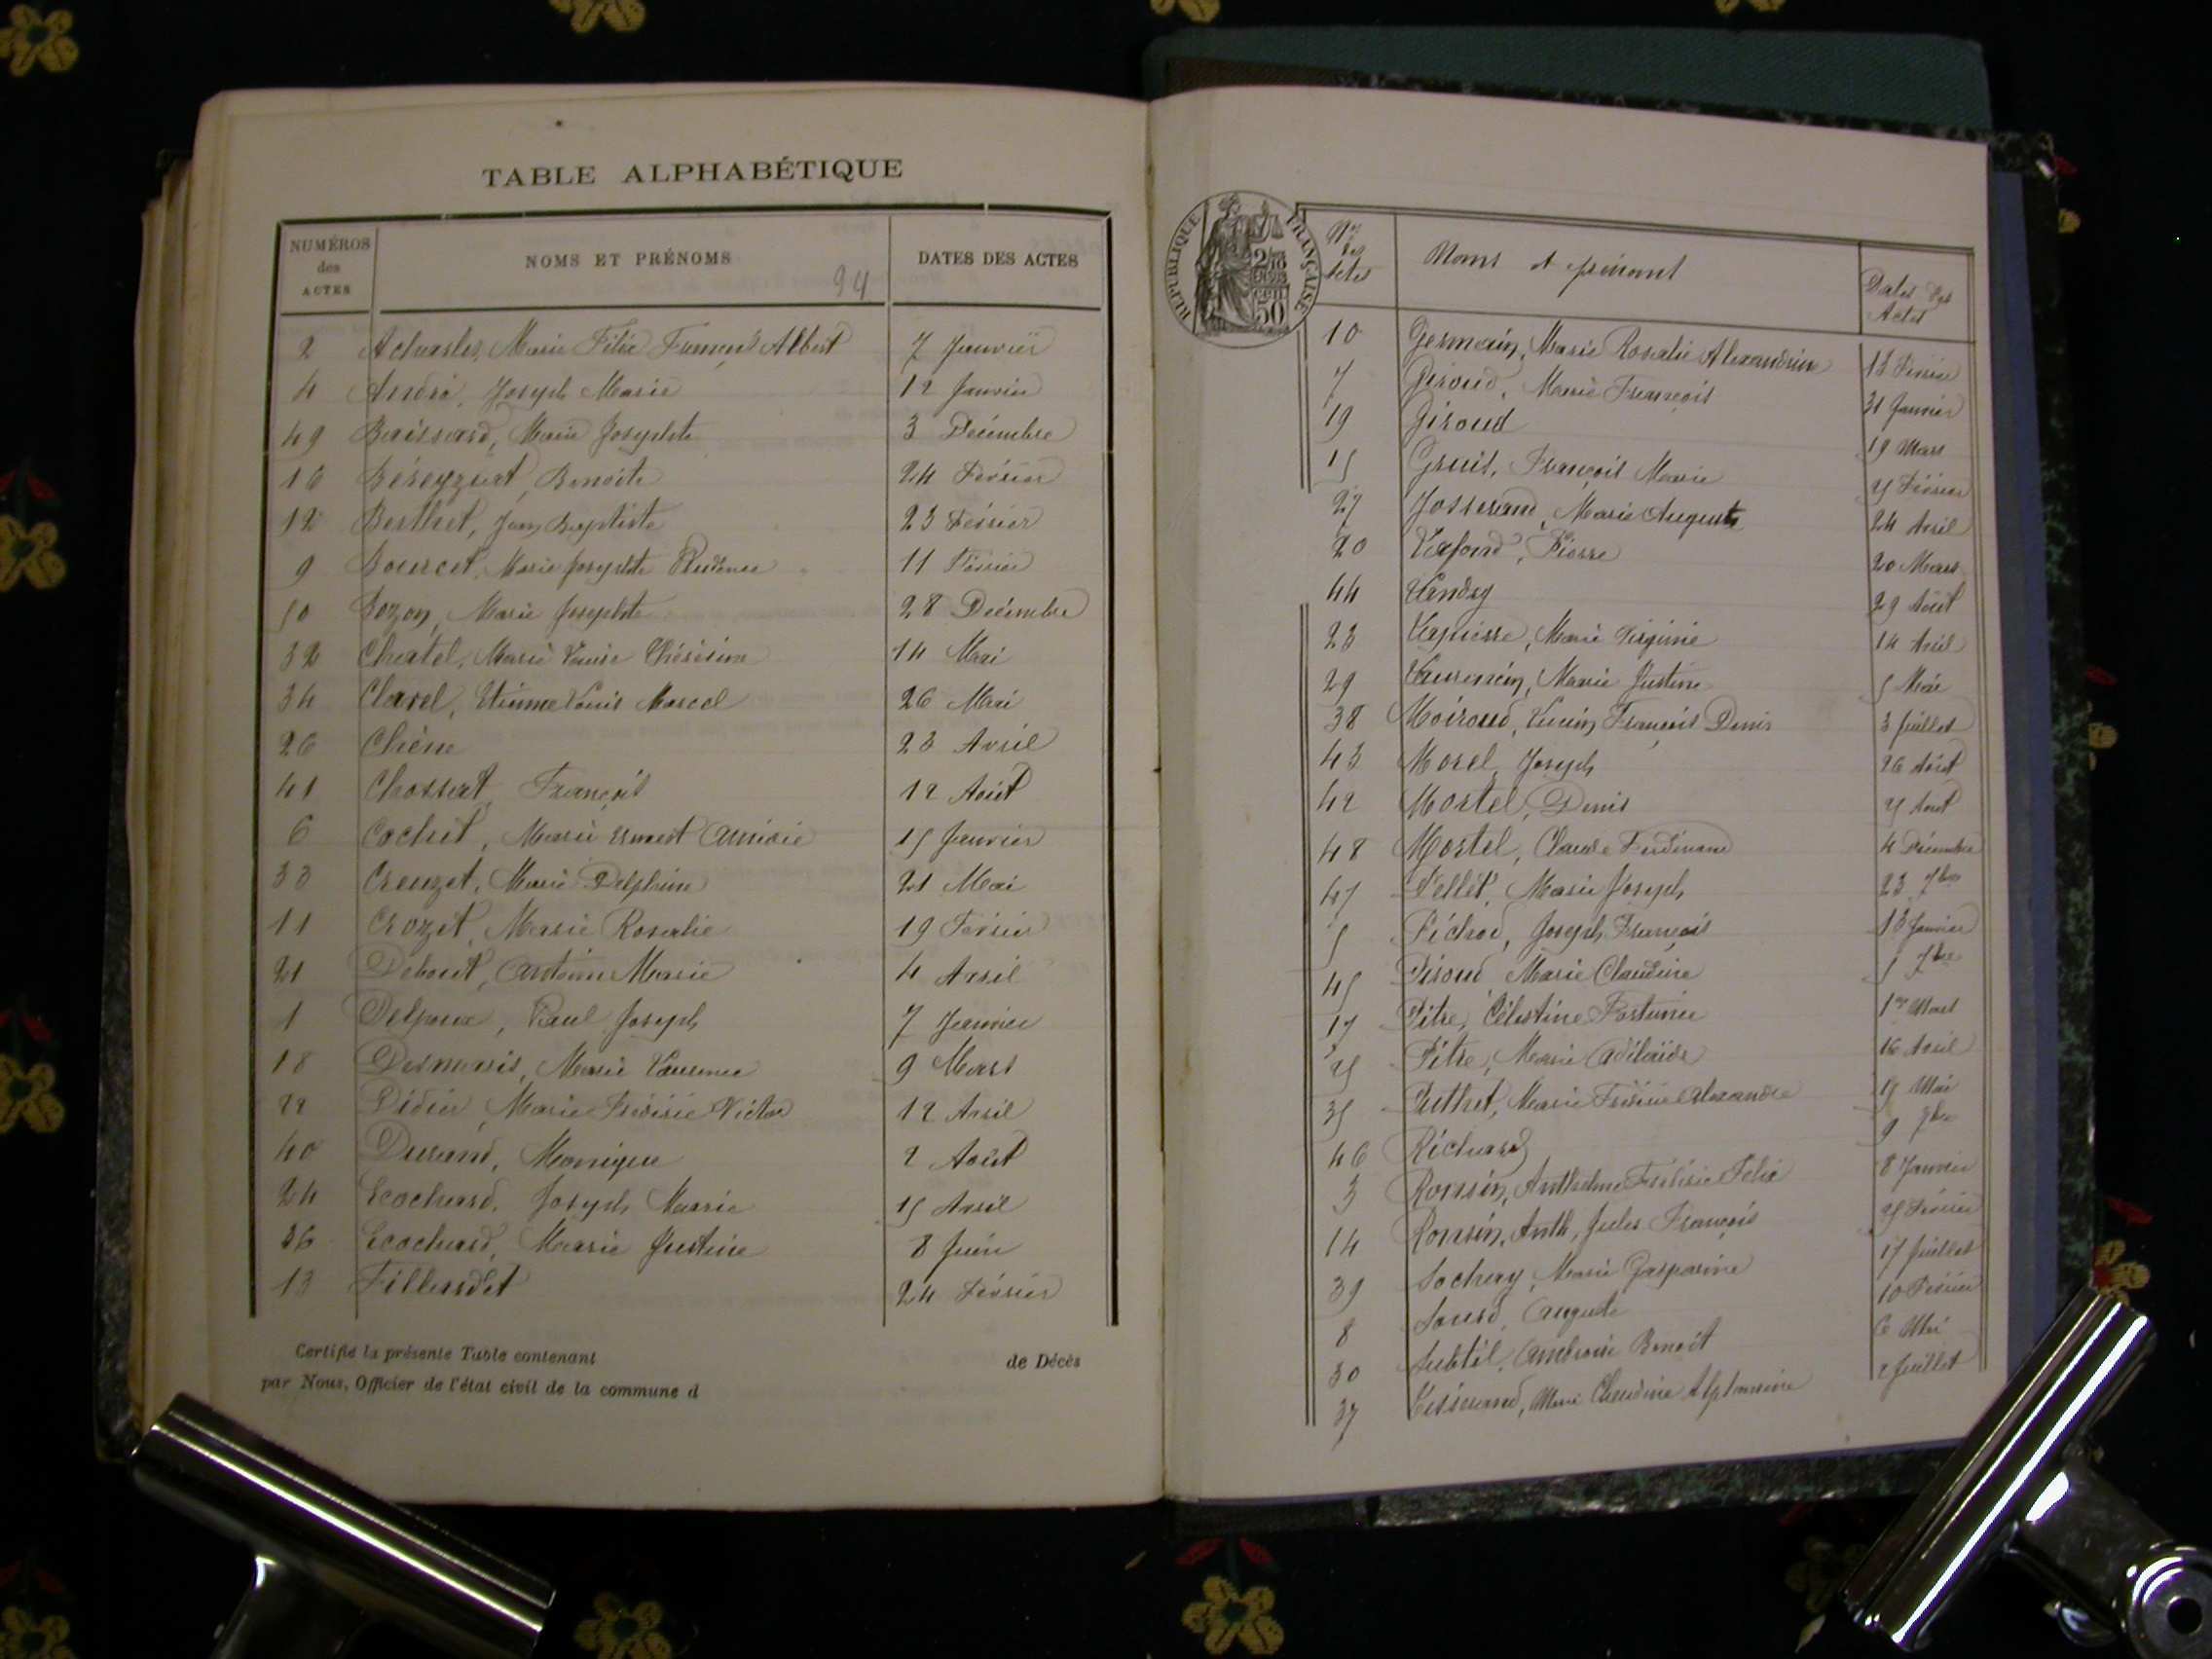 TABLE ALPHABÉTIQUE
NUMÉROS des ACTES NOMS ET PRÉNOMS 94 DATES DES ACTES
2 Marie Félix Albert 7 Janvier
4 André, Joseph Marie 12 Janvier
49 Baissard, Marie Josephte 3 Décembre
16 Béreyziat Benoite 24 Février
12 Berthet, Jean Baptiste 23 Février
9 Bourcet, Marie Josephte Prudence 11 Février
50 Bozon, Marie Josephte 28 Décembre
32 Chatel, Marie Louise Thérésine 14 Mai
34 Clavel, Etienne Louis Marcel 26 Mai
26 Chêne 23 Avril
41 Chossat François 12 Août
6 Cochet, Marie Ernest Aimé 15 Janvier
33 Creuzet, Marie Delphine 21 Mai
11 Crozet, Marie Rosalie 19 Février
21 Debout, Antoine Marie 4 Avril
1 Delpoux, Paul Joseph 7 Janvier
18 Desmaris, Marie Laurence 9 Mars
22 Didier, Marie Frédéric Victor 12 Avril
40 Durand, Monique 2 Août
24 Ecochard, Joseph Marie 15 Avril
36 Ecochard, Marie Justine 8 Juin
13 Fillardet 24 Février
Certifié la présente Table contenant de Décès
par Nous, Officier de l'état civil de la commune d
RÉPUBLIQUE FRANÇAISE
2/10 EN SUS
50 CEN
Nos des Actes Noms et prénoms Dates des Actes
10 Germain, Marie Rosalie Alexandrine 13 Février
7 Giroud, Marie François 31 Janvier
19 Giroud 19 Mars
15 Gruit, François Marie 25 Février
27 Josserand, Marie Auguste 24 Avril
20 Lafond, Pierre 20 Mars
44 Landry 29 Août
23 Lapierre, Marie Virginie 14 Avril
29 Laurencin, Marie Justine 5 Mai
38 Moiroud, Lucien François Denis 3 Juillet
43 Morel, Joseph 26 Août
42 Mortel, Denis 25 Août
48 Mortel, Claude Ferdinand 4 Décembre
47 Pellet, Marie Joseph 23 7bre
5 Pichod, Joseph François 13 Janvier
45 Piroud, Marie Claudine 5 7bre
17 Pitre, Célestine Fortunée 1er Mars
25 Pitre, Marie Adélaïde 16 Avril
35 Puthet, Marie Frédéric Alexandre Mai
46 Richard 9 7bre
3 Ronsin, Anthelme Frédéric Félix 8 Janvier
14 Ronsin, Anth, Jules François 25 Février
39 Sochay, Marie Gasparine 17 Juillet
8 Sourd, Auguste 10 Février
30 Subtil, Ambroise Benoit 6 Mai
37 Tisserand, Marie Claudine Alphonsine 2 Juillet